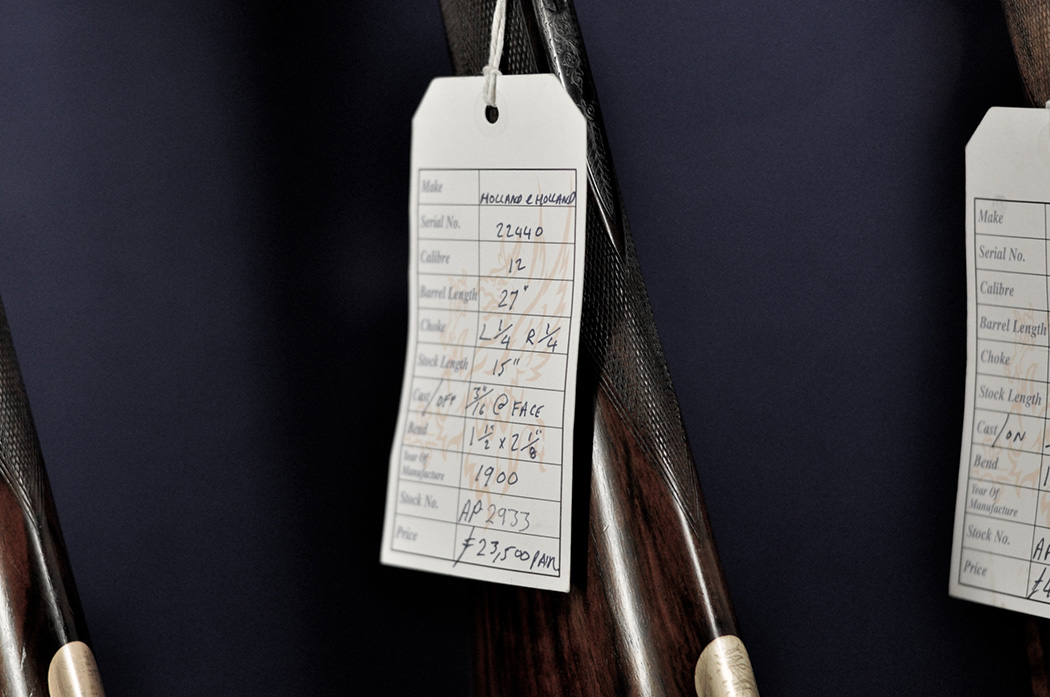 Make HOLLAND & HOLLAND
Serial No. 22440
Calibre 12
Barrel Length 27"
Choke L 1/4 R 1/4
Stock Length 15"
Cast/OFF 3/16" @ FACE
Bend 1 1/2" x 2 1/8"
Year Of
Manufacture 1900
Stock No. AP 2933
Price £23,500 PAIR
Make
Serial No.
Calibre
Barrel Length
Choke
Stock Length
Cast/ON
Bend
Year Of
Manufacture
Stock No.
Price £4